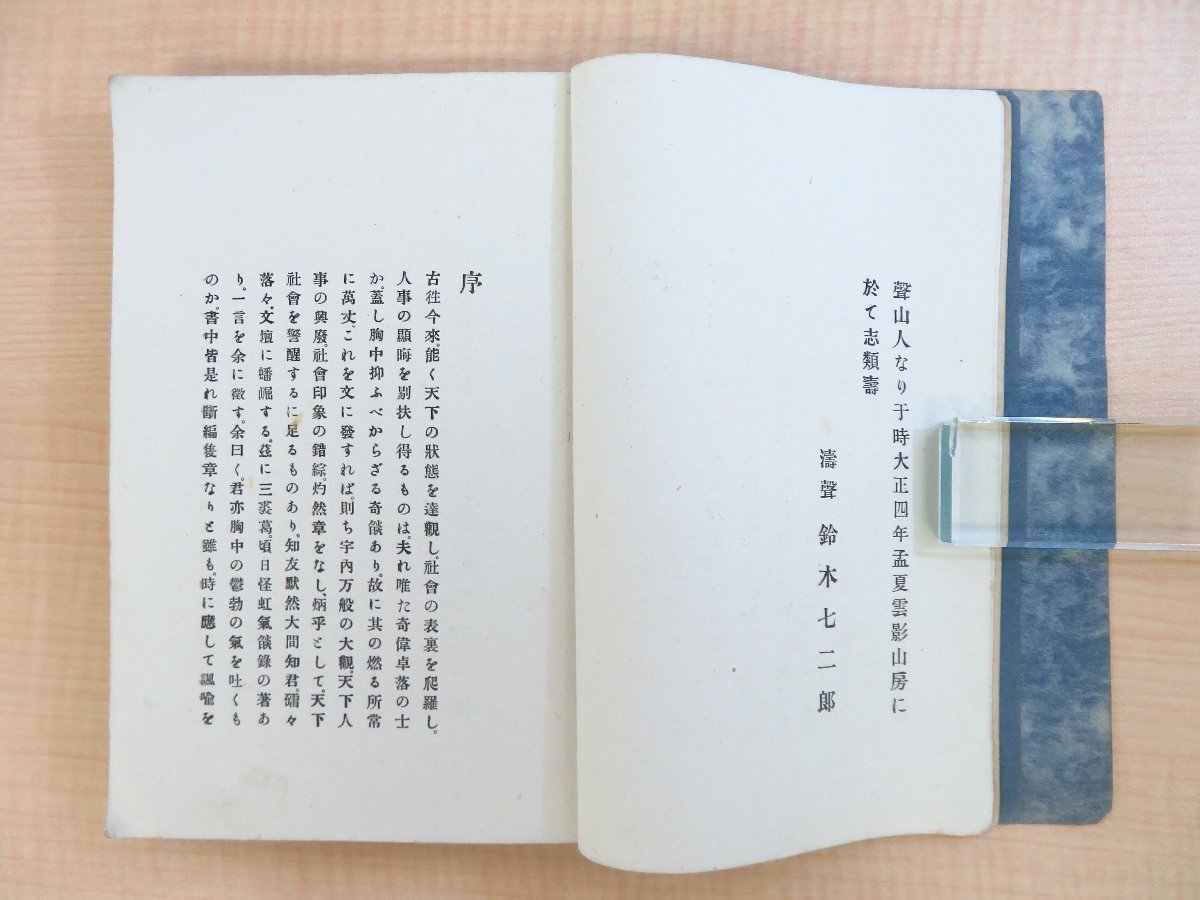 聲山人なり于時大正四年孟夏雲影山房に
於て志類壽
濤聲 鈴木七二郎
序
古徃今來。能く天下の狀態を達觀し。社會の表裏を爬羅し。
人事の顯晦を剔抉し得るものは。夫れ唯た奇偉卓落の士
か。蓋し胸中抑ふべからざる奇燄あり。故に其の燃る所常
に萬丈。これを文に發すれば。則ち宇內万般の大觀。天下人
事の興廢。社會印象の錯綜。灼然章をなし。炳乎として。天下
社會を警醒するに足るものあり。知友默然大間知君。磊々
落々。文壇に蟠崛する。茲に三裘葛。頃日怪虹氣燄錄の著あ
り。一言を余に徵す。余曰く。君亦胸中の鬱勃の氣を吐くも
のか。書中皆是れ斷編隻章なりと雖も。時に應して諷喩を